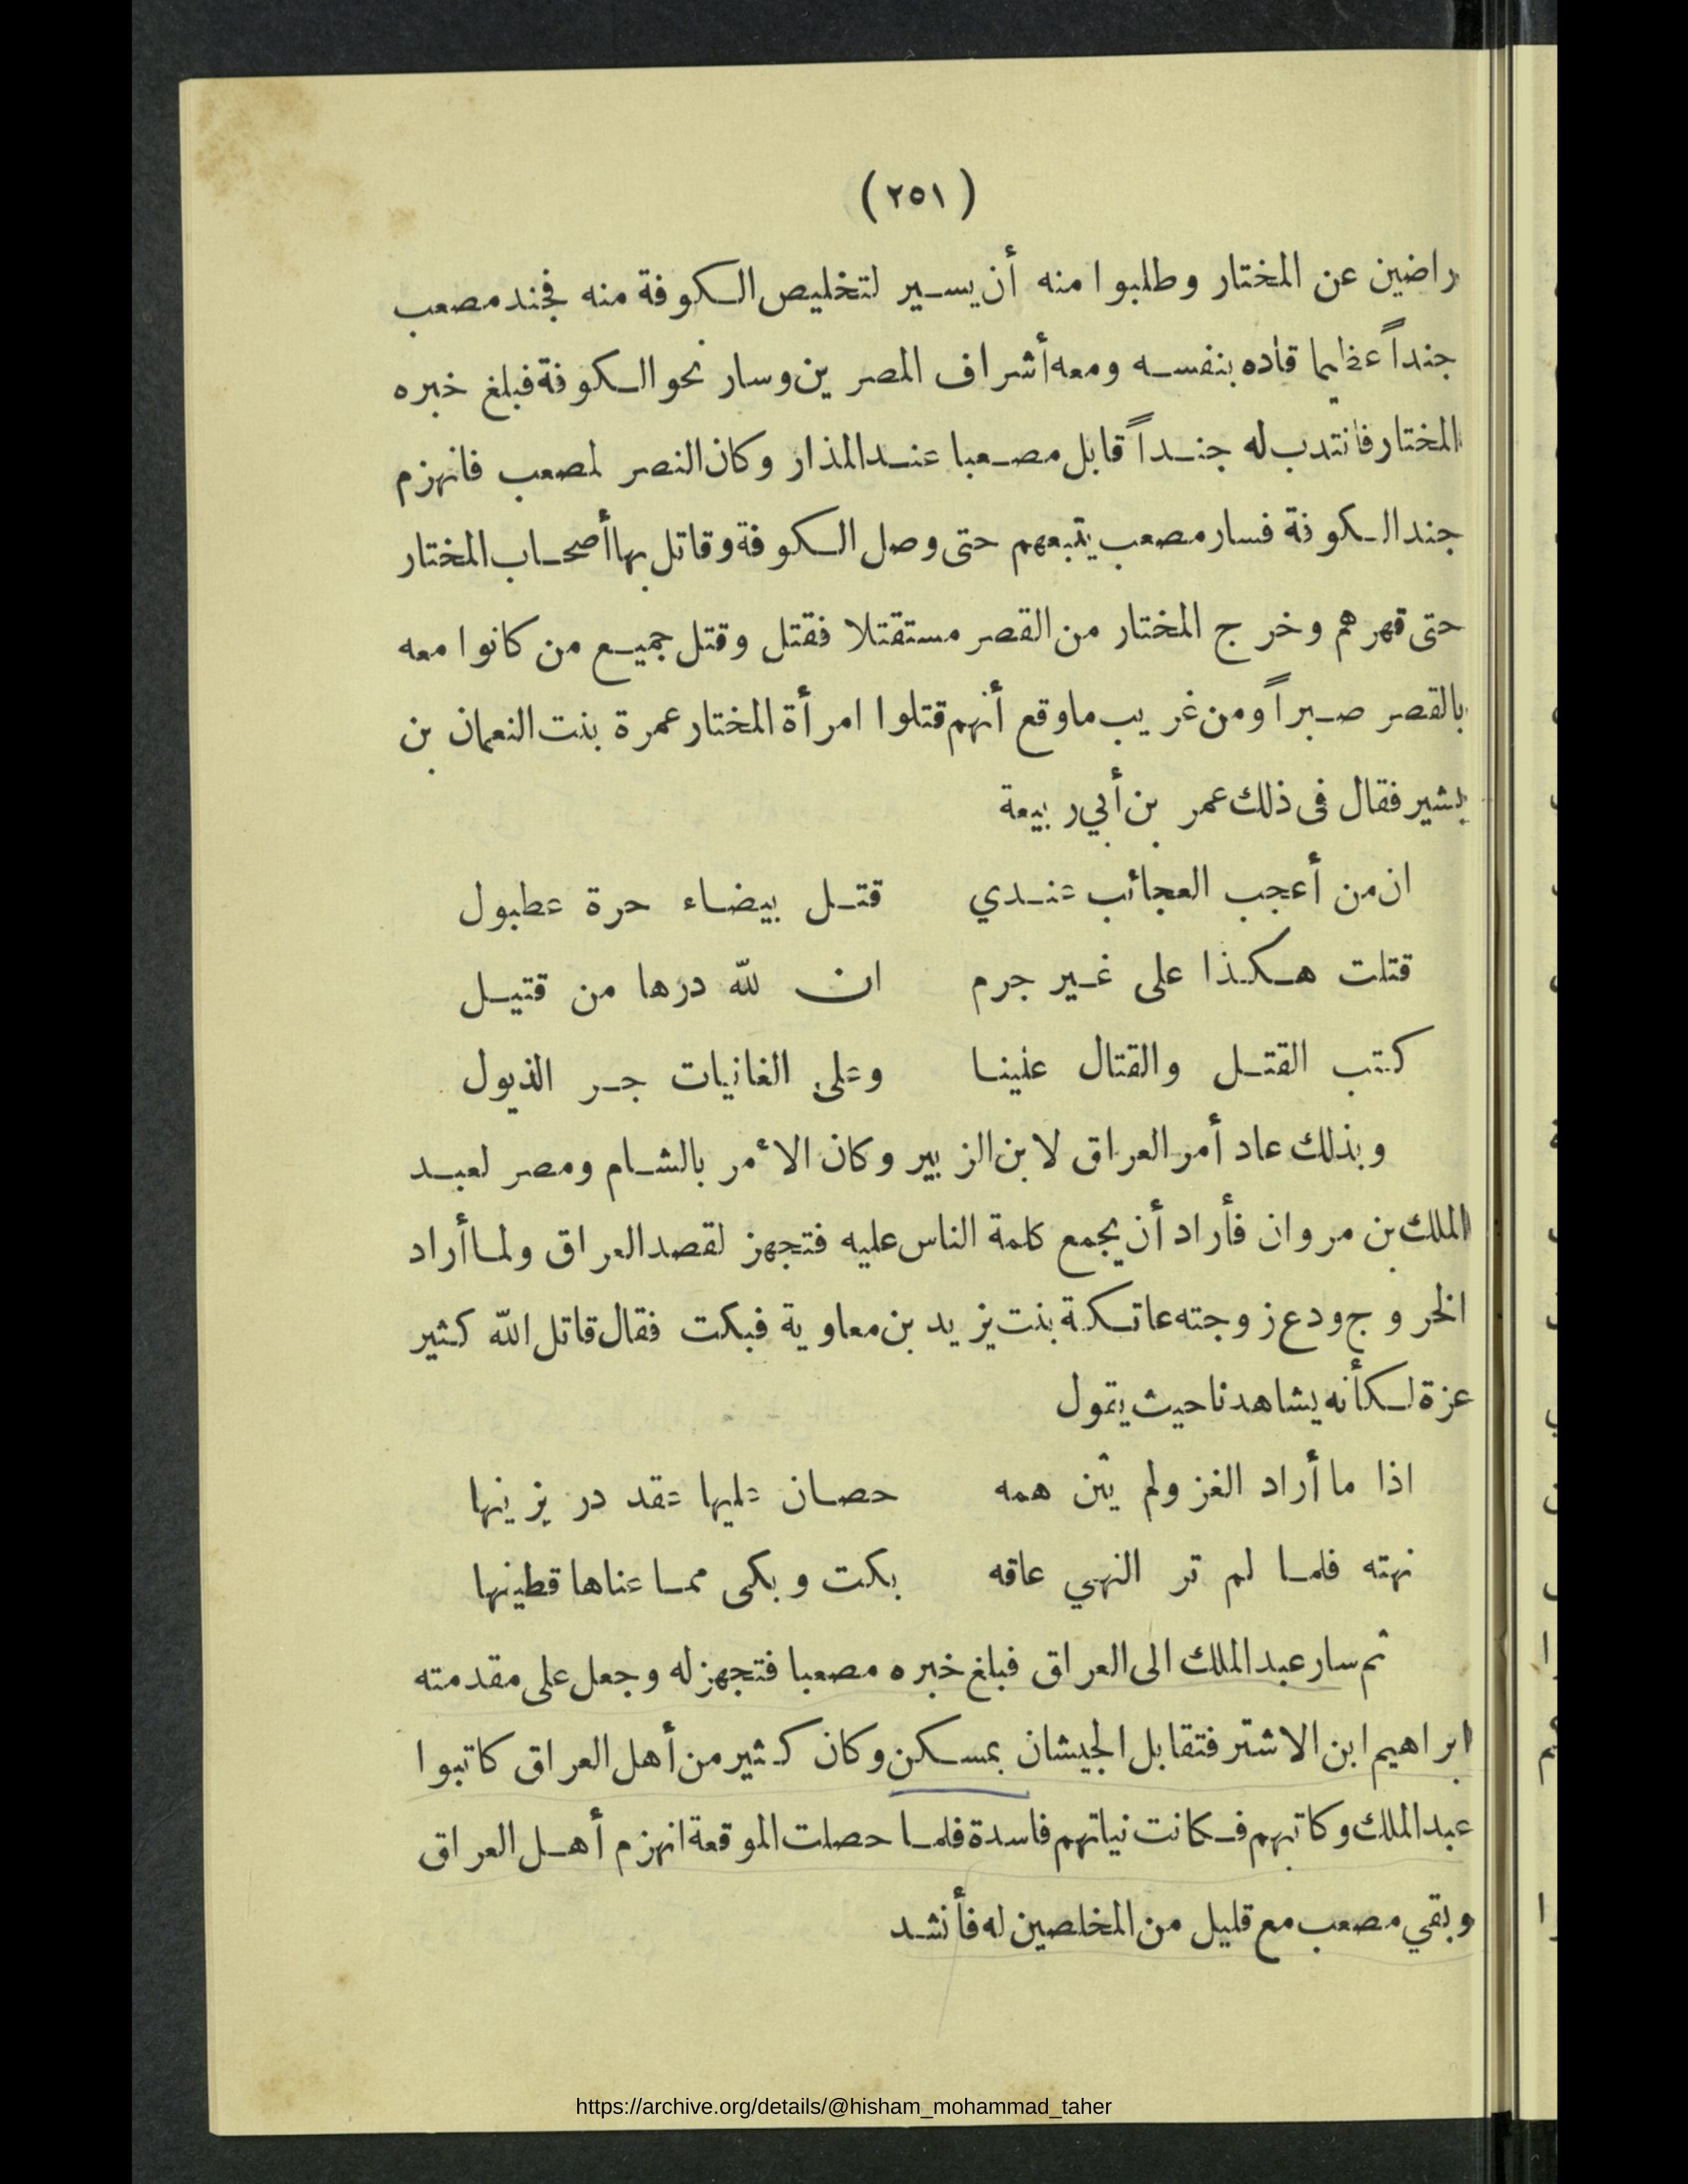 (٢٥١)
راضين عن المختار وطلبوا منه أن يسير لتخليص الكوفة منه فجند مصعب
جنداً عظيما قاده بنفسه ومعه أشراف المصرين وسار نحو الكوفة فبلغ خبره
المختار فانتدب له جنداً قابل مصعبا عند المذار وكان النصر لمصعب فانهزم
جند الكوفة فسار مصعب يتبعهم حتى وصل الكوفة وقاتل بها أصحاب المختار
حتى قهرهم وخرج المختار من القصر مستقتلا فقتل وقتل جميع من كانوا معه
بالقصر صبراً ومن غريب ما وقع أنهم قتلوا امرأة المختار عمرة بنت النعمان بن
بشير فقال فى ذلك عمر بن أبي ربيعة
ان من أعجب العجائب عندي قتل بيضاء حرة عطبول
قتلت هكذا على غير جرم ان لله درها من قتيل
كتب القتل والقتال علينا وعلى الغانيات جر الذيول
وبذلك عاد أمر العراق لابن الزبير وكان الأمر بالشام ومصر لعبد
الملك بن مروان فأراد أن يجمع كلمة الناس عليه فتجهز لقصد العراق ولما أراد
الخروج ودع زوجته عاتكة بنت يزيد بن معاوية فبكت فقال قاتل الله كثير
عزة لكأنه يشاهدنا حيث يقول
اذا ما أراد الغزو لم يثن همه حصان عليها عقد در يزينها
نهته فلما لم تر النهي عاقه بكت وبكى مما عناها قطينها
ثم سار عبد الملك الى العراق فبلغ خبره مصعبا فتجهز له وجعل على مقدمته
ابراهيم ابن الاشتر فتقابل الجيشان بمسكن وكان كثير من أهل العراق كاتبوا
عبد الملك وكاتبهم فكانت نياتهم فاسدة فلما حصلت الموقعة انهزم أهل العراق
وبقي مصعب مع قليل من المخلصين له فأنشد
https://archive.org/details/@hisham_mohammad_taher